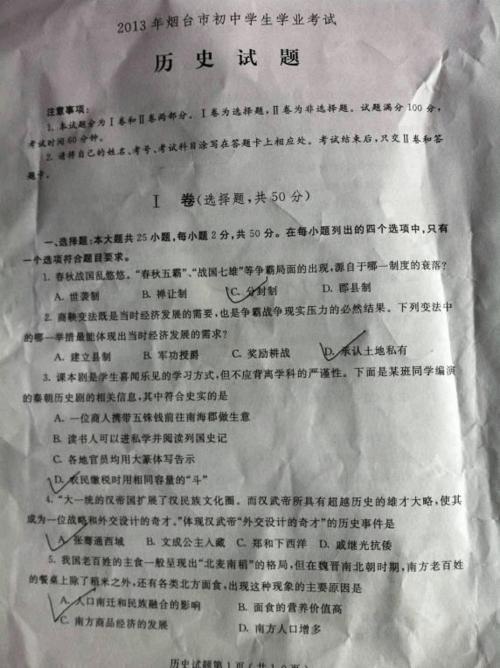 2013年烟台市初中学生学业考试
历史试题
注意事项:
1. 本试题分为Ⅰ卷和Ⅱ卷两部分。Ⅰ卷为选择题,Ⅱ卷为非选择题。试题满分100分,
考试时间60分钟。
2. 请将自己的姓名、考号、考试科目涂写在答题卡上相应处。考试结束后,只交Ⅱ卷和答
题卡。
Ⅰ 卷(选择题,共50分)
一、选择题:本大题共25小题,每小题2分,共50分。在每小题列出的四个选项中,只有
一个选项符合题目要求。
1. 春秋战国乱悠悠。“春秋五霸”、“战国七雄”等争霸局面的出现,源自于哪一制度的衰落?
A. 世袭制 B. 禅让制 C. 分封制 D. 郡县制
2. 商鞅变法既是当时经济发展的需要,也是争霸战争现实压力的必然结果。下列变法中
的哪一举措最能体现出当时经济发展的需求?
A. 建立县制 B. 军功授爵 C. 奖励耕战 D. 承认土地私有
3. 课本剧是学生喜闻乐见的学习方式,但不应背离学科的严谨性。下面是某班同学编演
的秦朝历史剧的相关信息,其中符合史实的是
A. 一位商人携带五铢钱前往南海郡做生意
B. 读书人可以进私学并阅读列国史记
C. 各地官员均用大篆体写告示
D. 农民缴税时用相同容量的“斗”
4. “大一统的汉帝国扩展了汉民族文化圈。而汉武帝所具有超越历史的雄才大略,使其
成为一位战略和外交设计的奇才。”体现汉武帝“外交设计的奇才”的历史事件是
A. 张骞通西域 B. 文成公主入藏 C. 郑和下西洋 D. 戚继光抗倭
5. 我国老百姓的主食一般呈现出“北麦南稻”的格局,但在魏晋南北朝时期,南方老百姓
的餐桌上除了稻米之外,还有各类北方面食,出现这种现象的主要原因是
A. 人口南迁和民族融合的影响 B. 面食的营养价值高
C. 南方商品经济的发展 D. 南方人口增多
历史试题第1页(共10页)